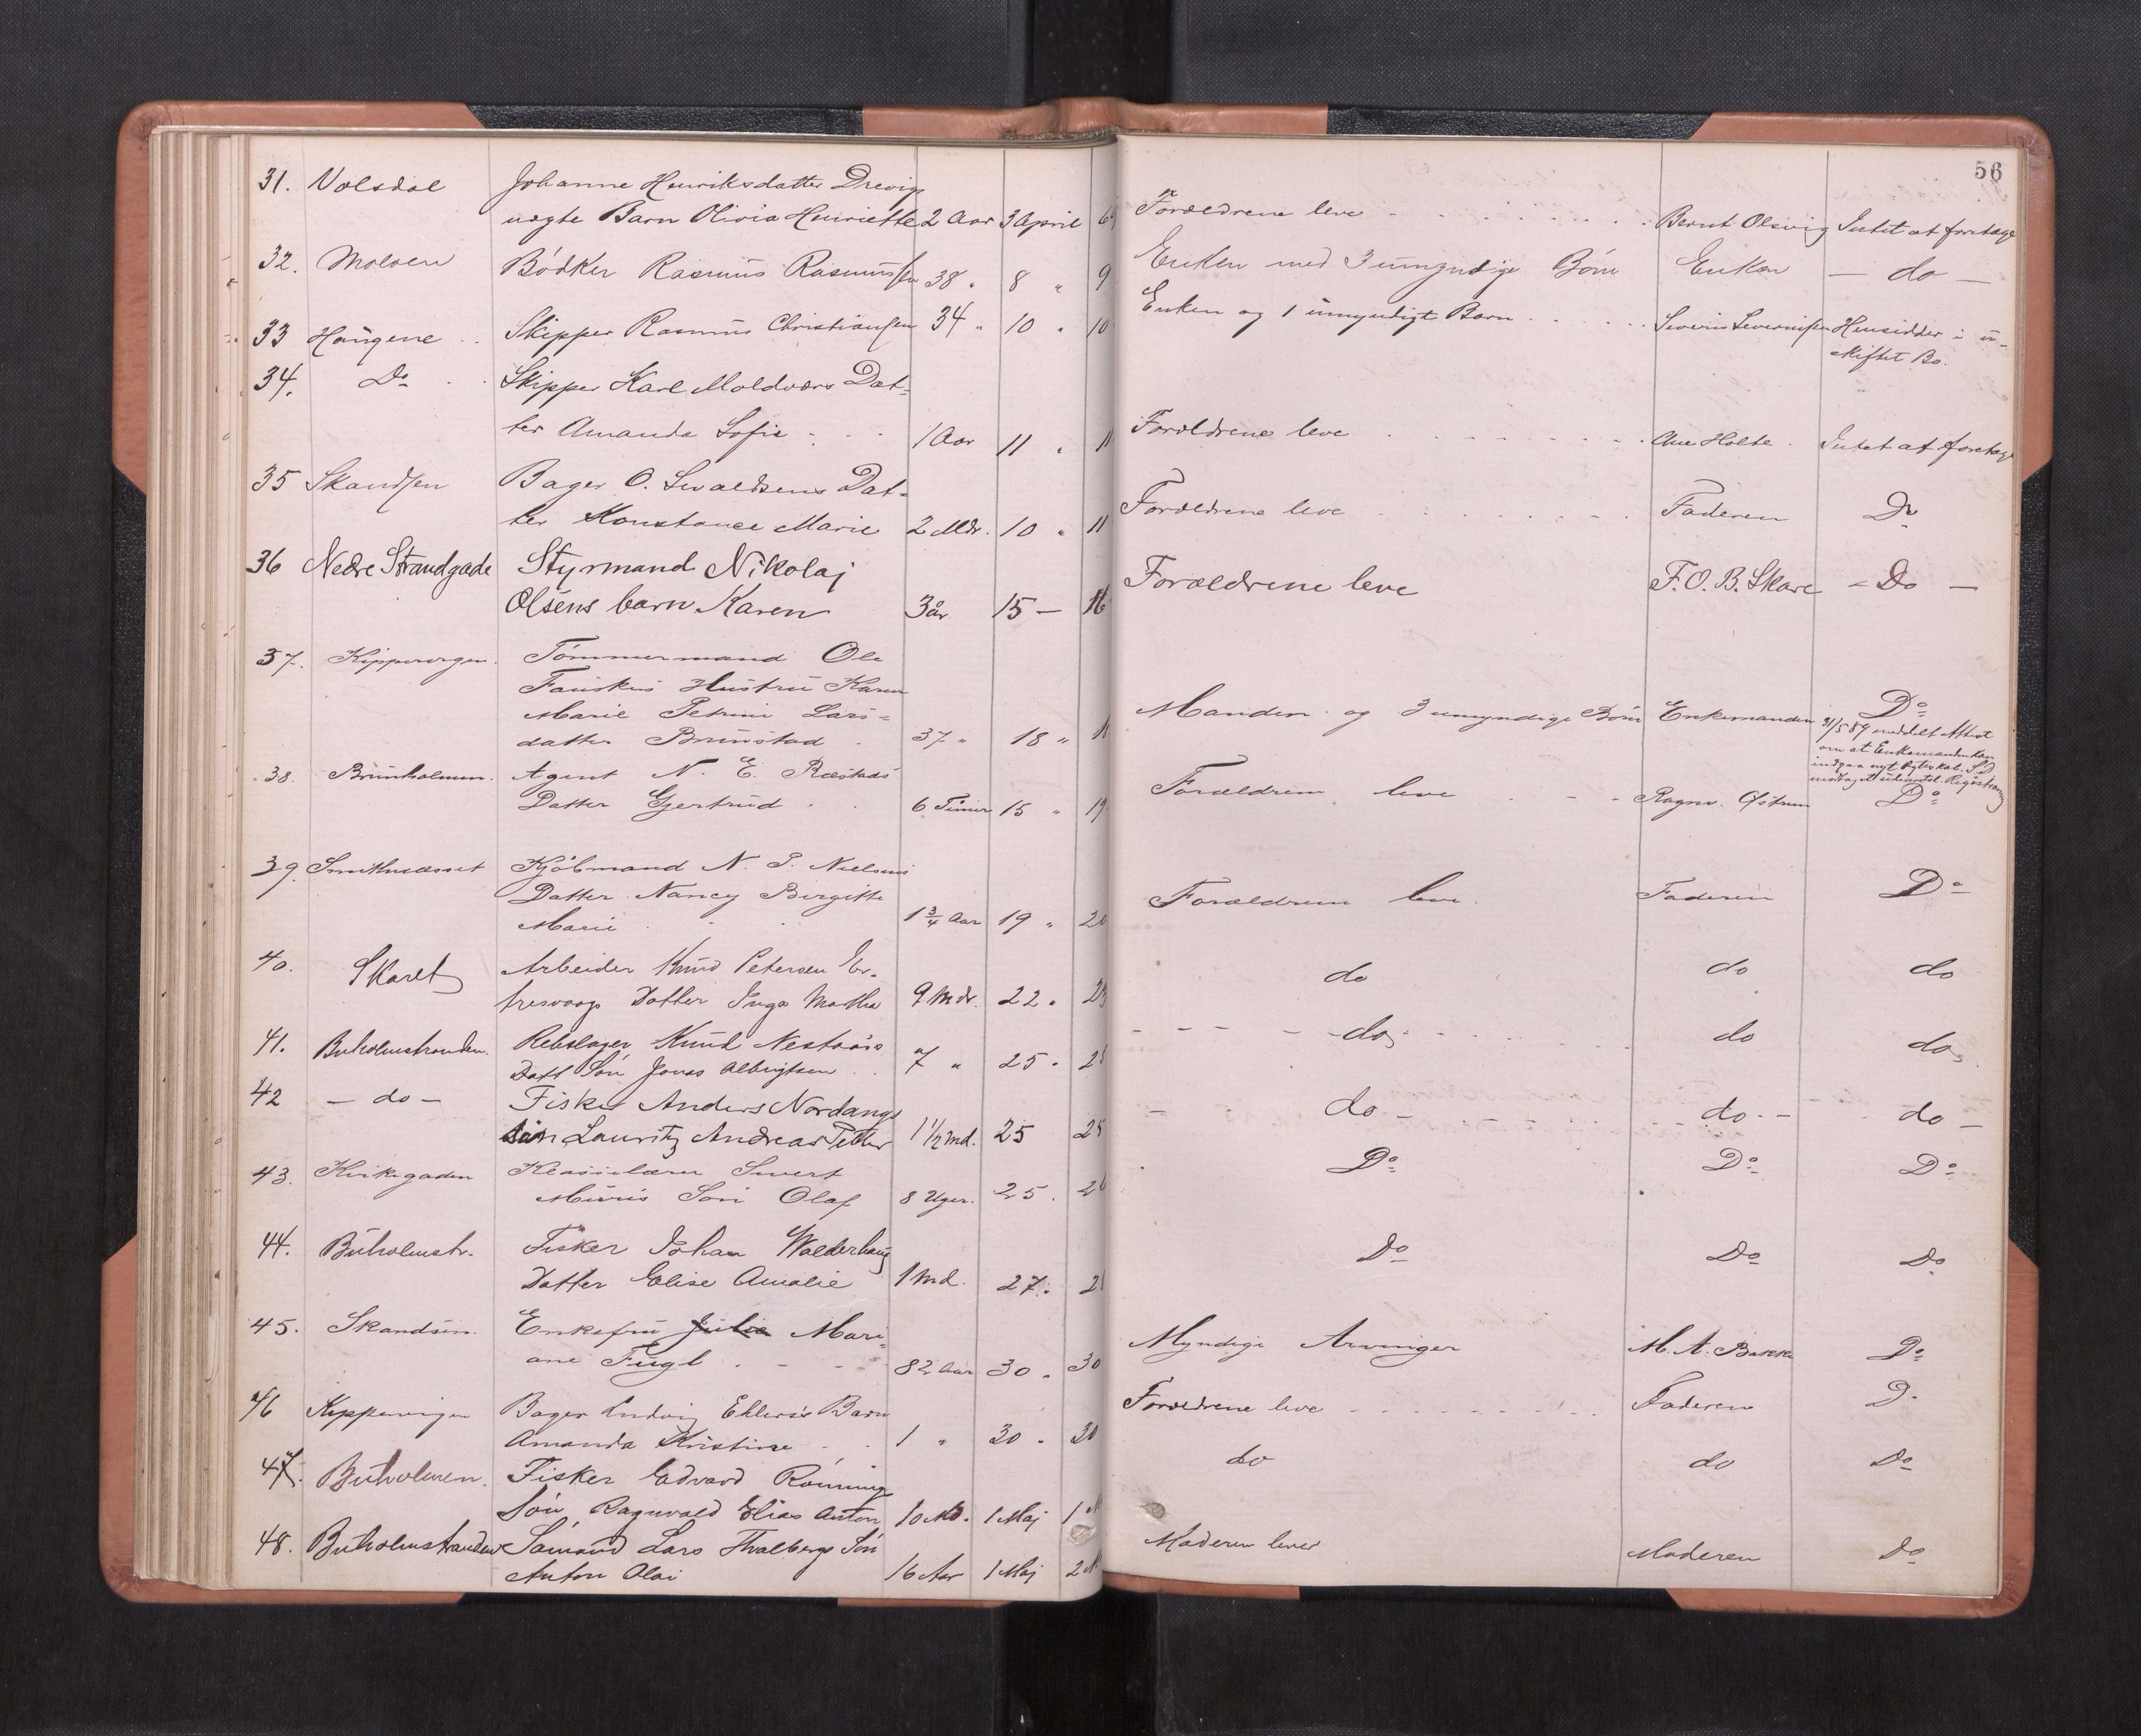 56
31. Volsdal Johanne Henriksdatter Drevig
uægte Barn Olivia Henriette 2 Aar 3 April Forældrene leve Bernt Olsvig Intet at foretage
32. Molven Bødker Rasmus Rasmussen 38 " 8 " 9 Enken med 3 umyndige Børn Enken — do —
33 Haugene Skipper Rasmus Christiansen 34 " 10 " 10 Enken og 1 umyndigt Barn Severin Severinsen Hensidder i u-
skiftet Bo.
34. Do Skipper Karl Moldværs Dat-
ter Amanda Sofie 1 Aar 11 " 11 Forældrene leve Ane Holte Intet at foretage
35 Skandsen Bager O. Sevaldsens Dat-
ter Konstance Marie 2 Mdr. 10 " 11 Forældrene leve Faderen Do
36 Nedre Strandgade Styrmand Nikolaj
Olsens barn Karen 3 år 15 — 16 Forældrene leve F. O. B. Skare - Do —
37. Kippervigen Tømmermand Ole
Fauskes Hustru Karen
Marie Petrine Lars-
datter Brunstad 37 " 18 " Manden og 3 umyndige Børn Enkemanden Do
31/5 89 meddelt Attest
om at Enkemanden kan
indgaa nyt Ægteskab.
38. Brunholmen. Agent N. E. Ræstads
Datter Gjertrud 6 Timer 15 " 19 Forældrene leve Ragnv. Østrem Do
39. Smithnæsset Kjøbmand N. P. Nielsens
Datter Nancy Birgitte
Marie 1 3/4 Aar 19 " 20 Forældrene leve Faderen Do
40. Skaret Arbeider Knud Petersen
Datter Inga Martha 9 Mdr. 22 " 23 do do do
41. Buholmstranden. Rebslager Knud Nestaas
Datt Søn Jonas Albrigtsen 7 " 25 " do do do
42 — do — Fisker Anders Nordangs
søn Lauritz Andreas Petter 1 1/2 Md. 25 25 do — do — do —
43. Kirkegaden Klasselærer Sivert
Muris Søn Olaf 8 Uger. 25. 26 Do Do Do
44. Buholmstr. Fisker Johan Walderhaug
Datter Elise Amalie 1 Md. 27. Do Do Do
45. Skandsen. Enkefru Julia Mari-
ane Fugl 82 Aar 30 " 30 Myndige Arvinger M. A. Bakke Do
46 Kippervigen Bager Ludvig Ehlers's Barn
Amanda Kristine 1 " 30 " 30 Forældrene leve Faderen D-
47. Buholmen. Fisker Edvard Rønnings
Søn Ragnvald Elias Anton 10 Md. 1 Maj 1 do do Do
48. Buholmstranden Sømand Lars Thvalbergs Søn
Anton Olai 16 Aar 1 Maj 2 Moderen lever Moderen Do